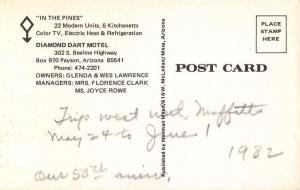 "IN THE PINES"
22 Modern Units, 6 Kitchenetts
Color TV, Electric Heat & Refrigeration
DIAMOND DART MOTEL
302 S. Beeline Highway
Box 970 Payson, Arizona 85541
Phone: 474-2201
OWNERS: GLENDA & WES LAWRENCE
MANAGERS: MRS. FLORENCE CLARK
MS. JOYCE ROWE
Published by Norman Mead/619 W. McLellan/Mesa, Arizona
PLACE
STAMP
HERE
POST CARD
Trip west with Moffitts
May 24 to June 1
1982
Our 50th anniv.